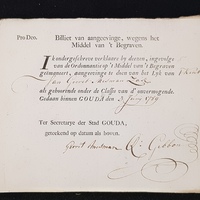 Pro Deo.
Billiet van aangeevinge, wegens het
Middel van 't Begraven.
Ik ondergeschreve verklaare by deezen, ingevolge
van de Ordonnantie op 't Middel van 't Begraven
geimpost, aangeevinge te doen van het Lyk van
als gehoorende onder de Classis van d' onvermogende.
Gedaan binnen GOUDA den 3 Juny 1789
Ter Secretarye der Stad GOUDA,
geteekend op datum als boven.
Gerrit